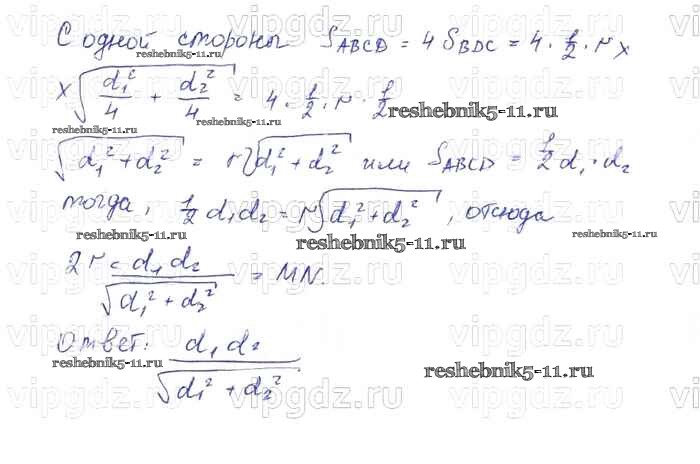 С одной стороны S_ABCD = 4 S_BDC = 4 · 1/2 · r ×
× √(d₁²/4 + d₂²/4) = 4 · 1/2 · r · 1/2
√(d₁² + d₂²) = r√(d₁² + d₂²) или S_ABCD = 1/2 d₁ · d₂
тогда, 1/2 d₁d₂ = r√(d₁² + d₂²), отсюда
2r = d₁d₂/√(d₁² + d₂²) = MN.
Ответ: d₁d₂/√(d₁² + d₂²)
reshebnik5-11.ru
reshebnik5-11.ru
reshebnik5-11.ru
reshebnik5-11.ru
reshebnik5-11.ru
reshebnik5-11.ru
reshebnik5-11.ru
reshebnik5-11.ru
reshebnik5-11.ru
vipgdz.ru